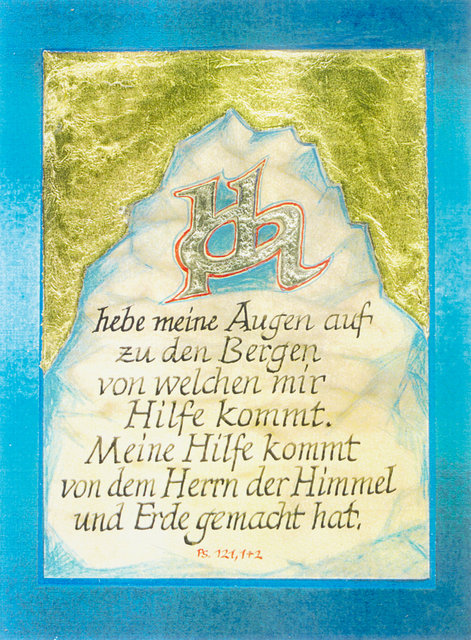 Ich
hebe meine Augen auf
zu den Bergen
von welchen mir
Hilfe kommt.
Meine Hilfe kommt
von dem Herrn der Himmel
und Erde gemacht hat.
Ps. 121, 1+2